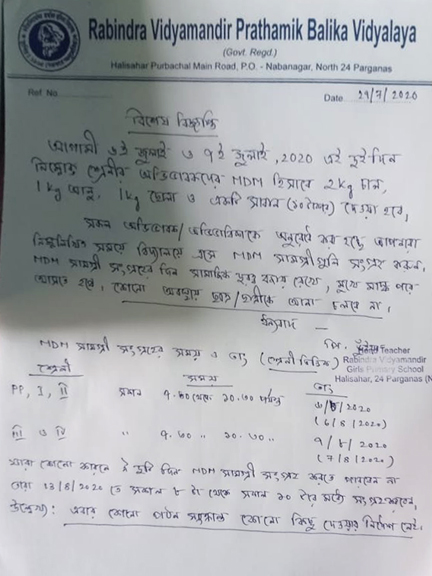 Rabindra Vidyamandir Prathamik Balika Vidyalaya
(Govt. Regd.)
Halisahar Purbachal Main Road, P.O. - Nabanagar, North 24 Parganas
Ref. No.
Date 29/7/2020
বিশেষ বিজ্ঞপ্তি
আগামী ৬ই জুলাই ও ৭ই জুলাই, 2020 এই দুই দিন
শ্রেণীর অভিভাবকদের MDM হিসাবে 2kg চাল,
1kg আলু, 1kg ছোলা ও একটি সাবান (১০ টাকার) দেওয়া হবে,
সকল অভিভাবক/অভিভাবিকাকে অনুরোধ করা হচ্ছে আপনারা
নিম্নলিখিত সময়ে বিদ্যালয়ে এসে MDM সামগ্রীগুলি সংগ্রহ করুন,
MDM সামগ্রী সংগ্রহের দিন সামাজিক দূরত্ব বজায় রেখে, মুখে মাস্ক পরে
আসতে হবে, কোনো অবস্থায় ছাত্র/ছাত্রীকে আনা চলবে না,
ধন্যবাদ —
Head Teacher
Rabindra Vidyamandir
Girls Primary School
Halisahar, 24 Parganas (N
MDM সামগ্রী সংগ্রহের সময় ও তাং (শ্রেণী ভিত্তিক)
শ্রেণী সময় তাং
PP, I, II সকাল ৭.৩০ থেকে ১০.৩০ পর্যন্ত ৬/৮/২০২০
(6/8/2020)
III ও IV " ৭.৩০ " ১০.৩০ " ৭/৮/২০২০
(7/8/2020)
যারা কোনো কারনে ঐ দুটি দিন MDM সামগ্রী সংগ্রহ করতে পারবেন না
তারা ১৩/৪/২০২০ তে সকাল ৮ টা থেকে সকাল ১০ টার মধ্যে সংগ্রহ করবেন,
উল্লেখ্য: এবার কোনো পঠন সংক্রান্ত কোনো কিছু দেওয়ার নির্দেশ নেই.